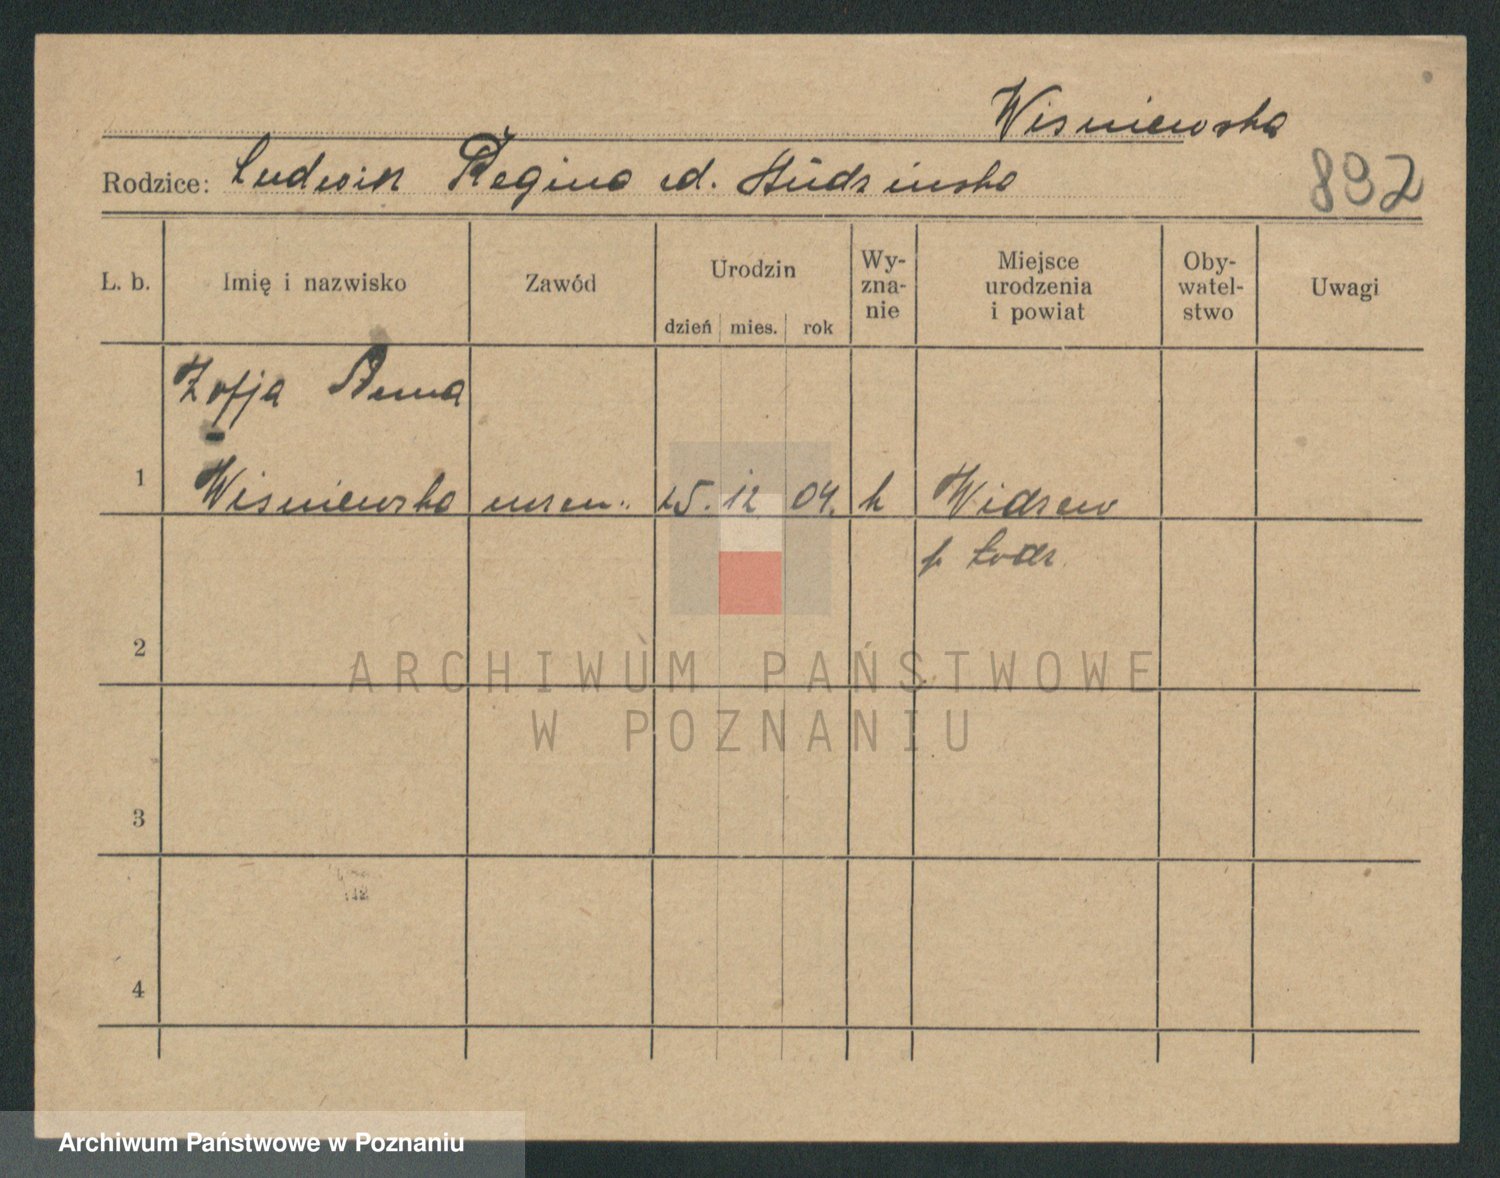 Wisniewska
Rodzice: Ludwik Regina d. Hudzinska
892
L. b. Imię i nazwisko Zawód Urodzin dzień mies. rok Wy-zna-nie Miejsce urodzenia i powiat Oby-watel-stwo Uwagi
Zofja Anna
1 Wisniewska 25. 12 04. k Widzew
p Łodz
2
ARCHIWUM PAŃSTWOWE
W POZNANIU
3
4
Archiwum Państwowe w Poznaniu